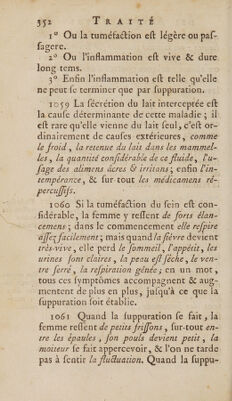 352 TRAITÉ
1° Ou la tuméfaction est légère ou pas-
sagere.
2° Ou l'inflammation est vive & dure
long tems.
3° Enfin l'inflammation est telle qu'elle
ne peut se terminer que par suppuration.
1059 La sécrétion du lait interceptée est
la cause déterminante de cette maladie ; il
est rare qu'elle vienne du lait seul, c'est or-
dinairement de causes extérieures, comme
le froid, la retenue du lait dans les mammel-
les, la quantité considérable de ce fluide, l'u-
sage des alimens âcres & irritans ; enfin l'in-
tempérance, & sur-tout les médicamens ré-
percussifs.
1060 Si la tuméfaction du sein est con-
sidérable, la femme y ressent de forts élan-
cemens ; dans le commencement elle respire
assez facilement ; mais quand la fièvre devient
très-vive, elle perd le sommeil, l'appétit, les
urines sont claires, la peau est sèche, le ven-
tre serré, la respiration gênée ; en un mot,
tous ces symptômes accompagnent & aug-
mentent de plus en plus, jusqu'à ce que la
suppuration soit établie.
1061 Quand la suppuration se fait, la
femme ressent de petits frissons, sur-tout en-
tre les épaules, son pouls devient petit, la
moiteur se fait appercevoir, & l'on ne tarde
pas à sentir la fluctuation. Quand la suppu-